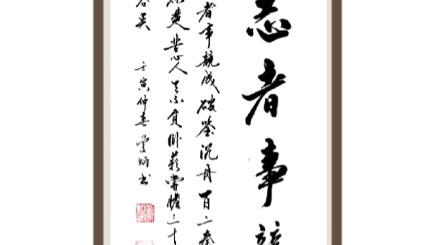 志者事竟
者事竟成破釜沉舟百二秦
楚苦心人天不负卧薪尝胆三千
吞吴
壬寅仲春 书